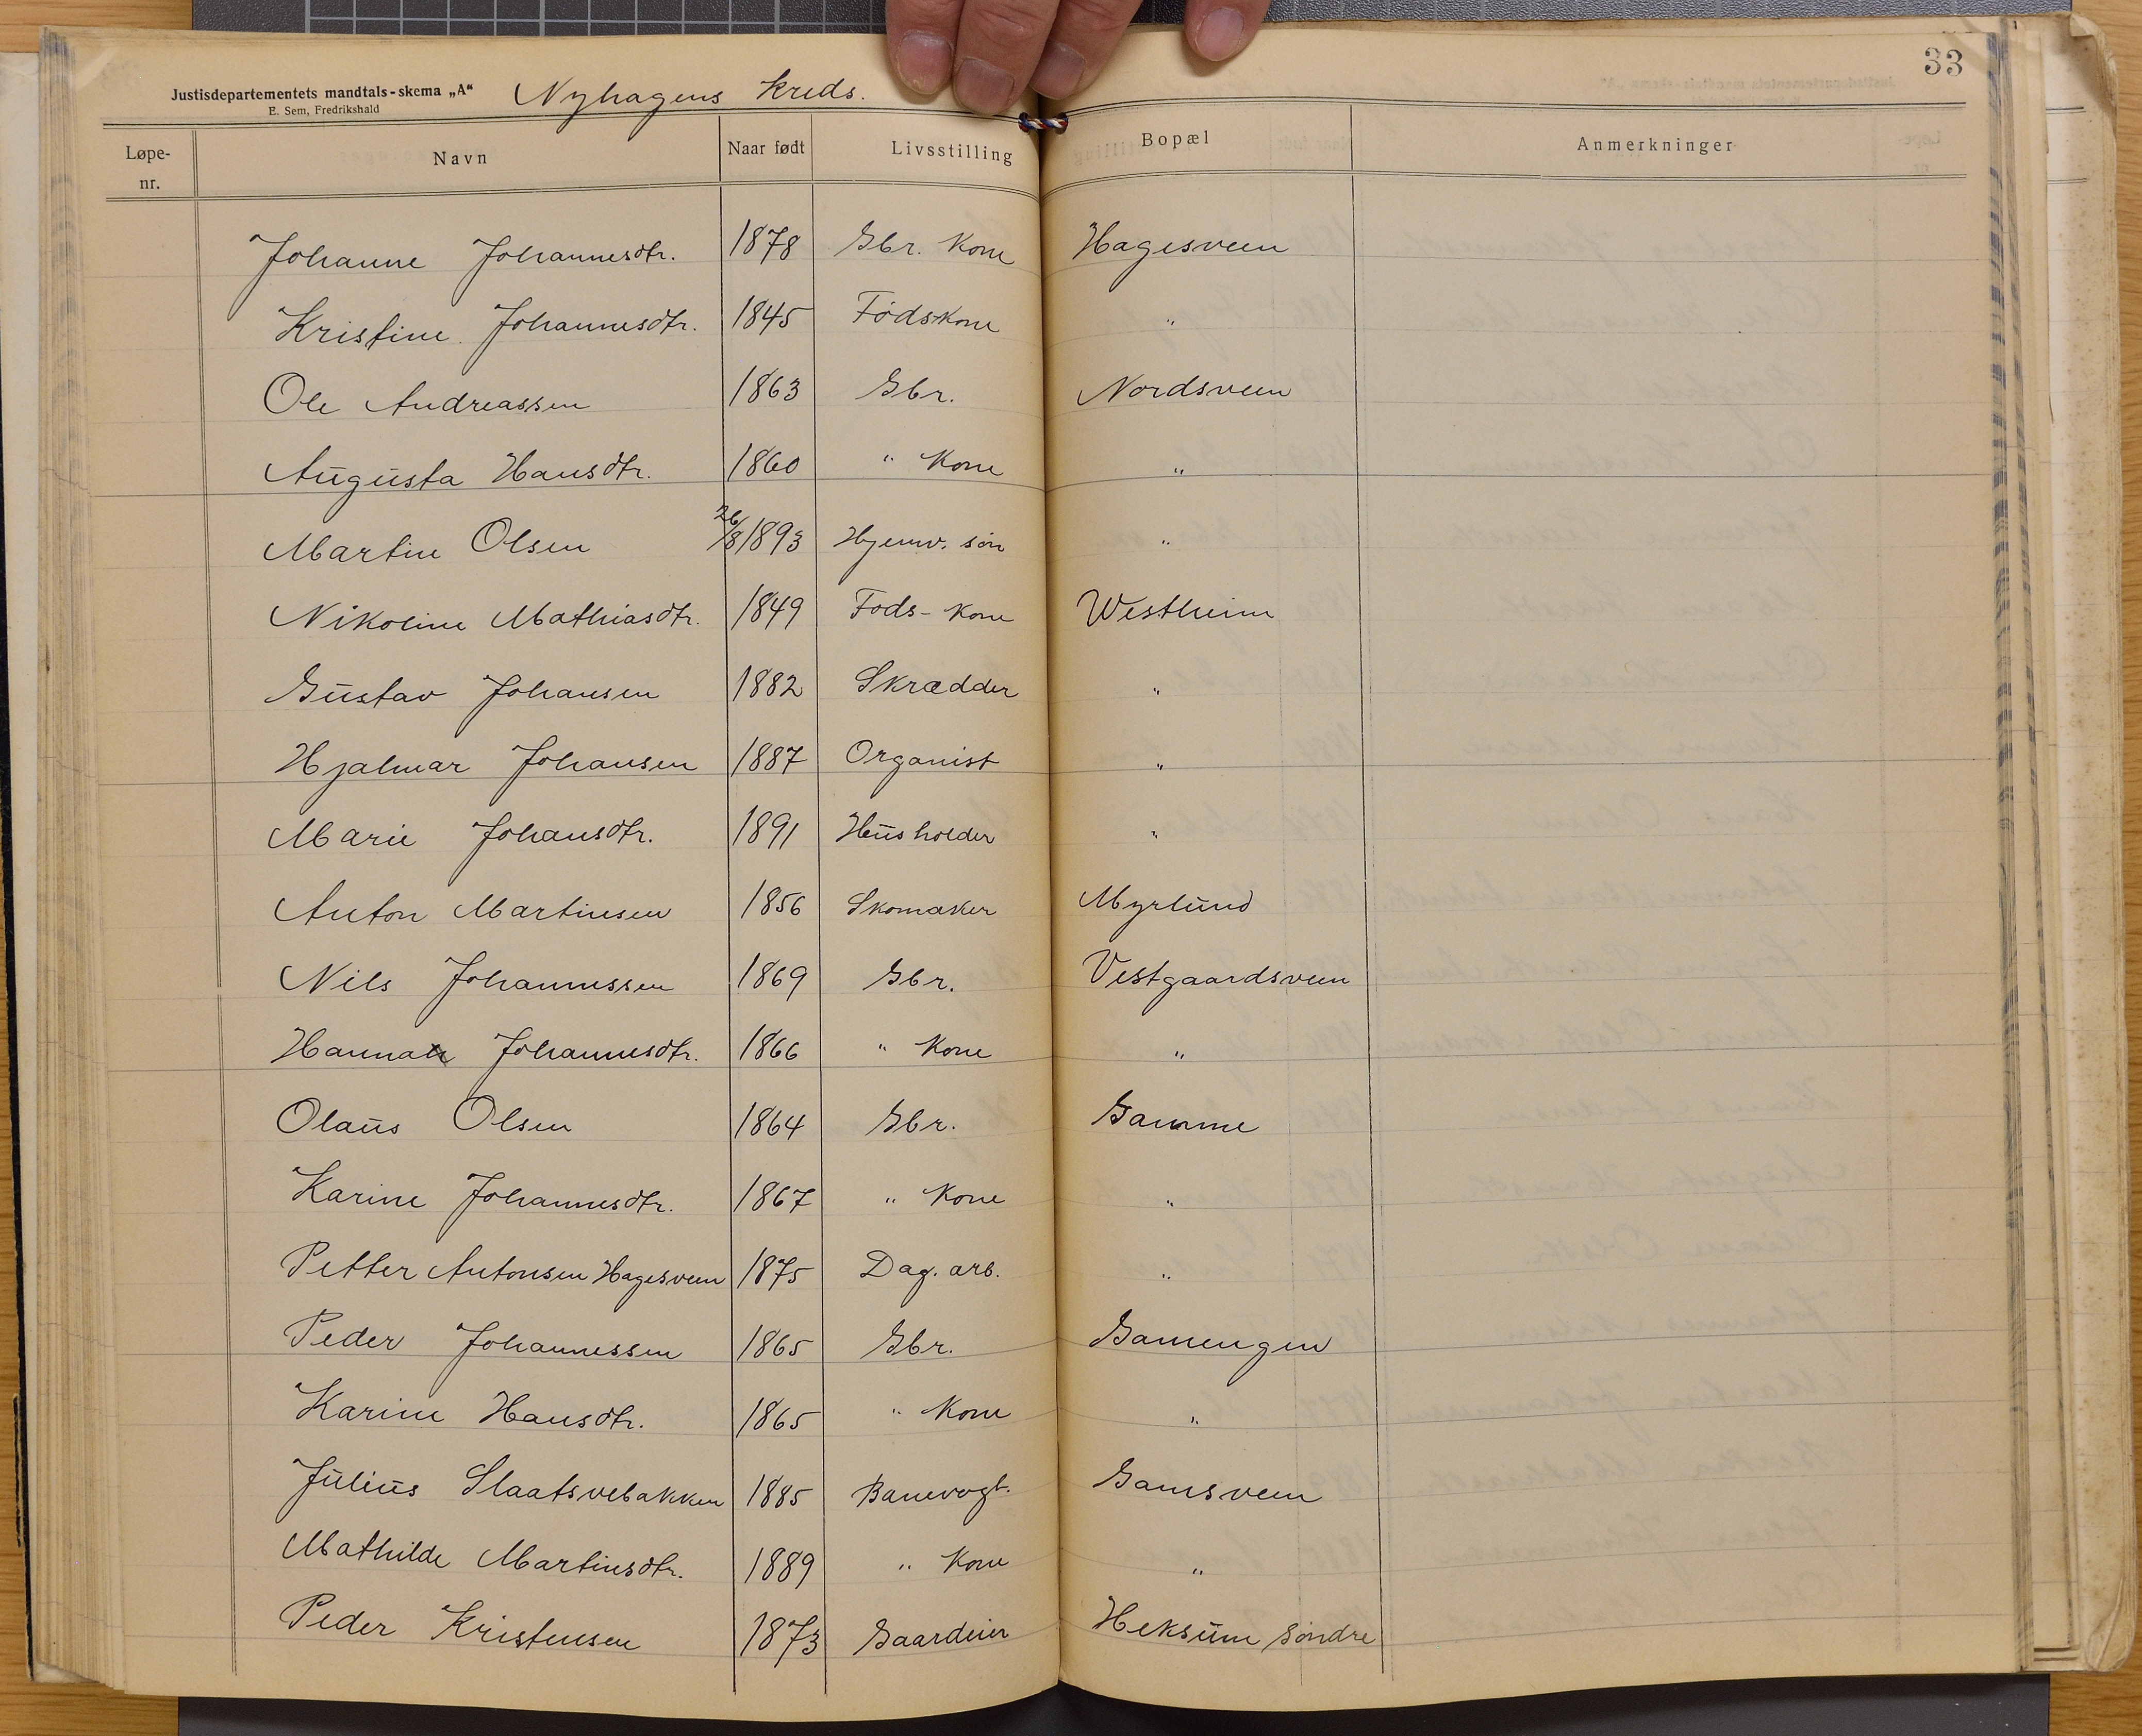 33
Justisdepartementets mandtals-skema „A“ Nyhagens Kreds.
E. Sem, Fredrikshald
Løpe-nr. Navn Naar født Livsstilling Bopæl Anmerkninger
Johanne Johannesdtr. 1878 Gbr. Kone Hagesveen
Kristine Johannesdtr. 1845 Fødskone "
Ole Andreassen 1863 Gbr. Nordsveen
Augusta Hansdtr. 1860 " Kone "
Martin Olsen 26/8 1893 Hjemv. søn "
Nikoline Mathiasdtr. 1849 Føds-Kone Westheim
Gustav Johansen 1882 Skrædder "
Hjalmar Johansen 1887 Organist "
Marie Johansdtr. 1891 Husholder "
Anton Martinsen 1856 Skomaker Myrlund
Nils Johannessen 1869 Gbr. Vestgaardsveen
Hanna Johannesdtr. 1866 " Kone "
Olaus Olsen 1864 Gbr. Gamme
Karine Johannesdtr. 1867 " Kone "
Petter Antonsen Hagesveen 1875 Dag. arb. "
Peder Johannessen 1865 Gbr. Gamengen
Karine Hansdtr. 1865 " Kone "
Julius Slaatsvebakken 1885 Banevogt. Gamsveen
Mathilde Martinsdtr. 1889 " Kone "
Peder Kristensen 1873 Gaardeier Heksum søndre